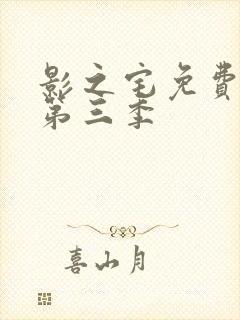 影之宅免費
第三季
喜山月